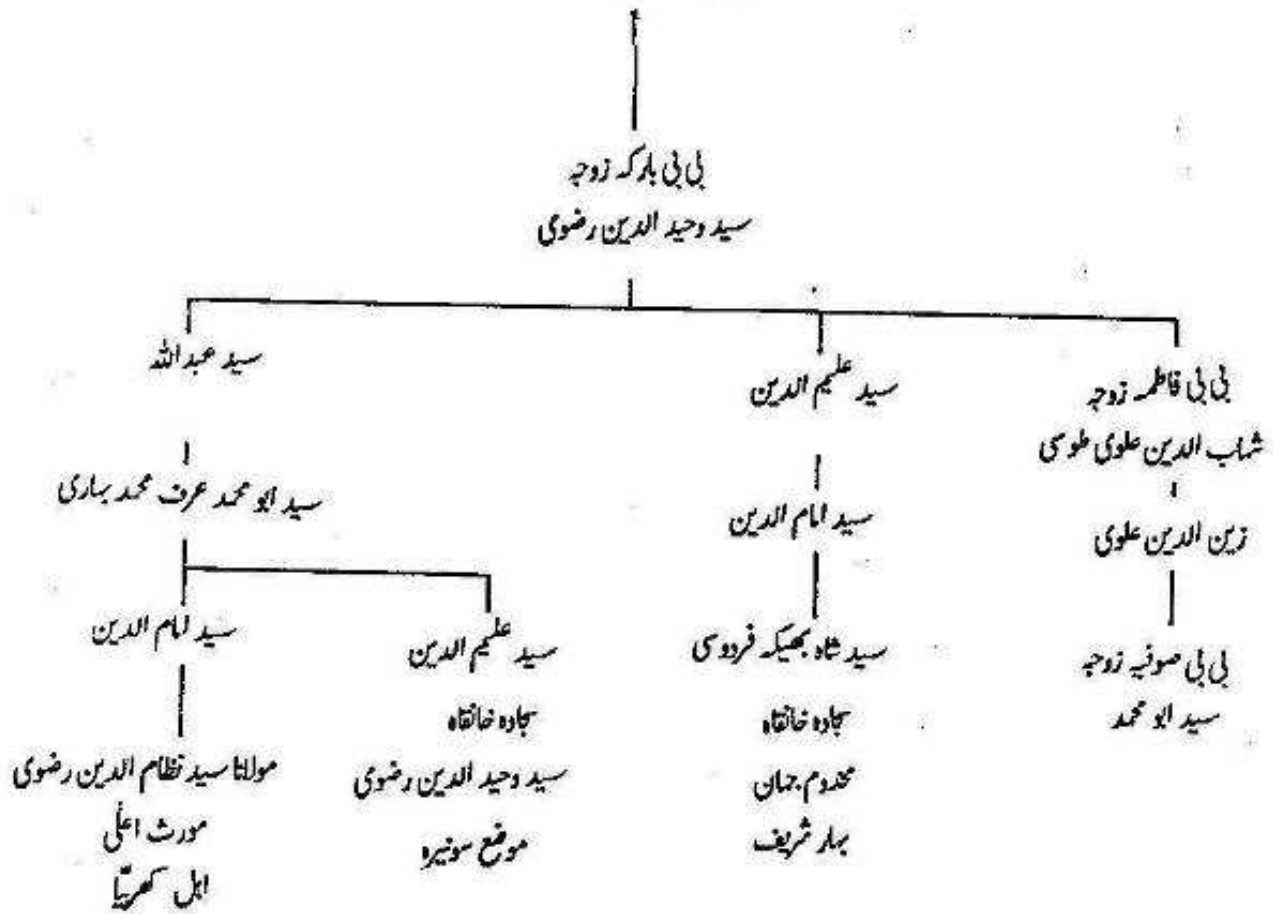 بی بی بارکہ زوجہ
سید وحید الدین رضوی
بی بی فاطمہ زوجہ
شہاب الدین علوی طوسی
زین الدین علوی
بی بی صوفیہ زوجہ
سید ابو محمد
سید علیم الدین
سید امام الدین
سید شاہ بھیکہ فردوسی
سجادہ خانقاہ
مخدوم جہان
بہار شریف
سید عبداللہ
سید ابو محمد عرف محمد بہاری
سید علیم الدین
سجادہ خانقاہ
سید وحید الدین رضوی
موضع سونیرہ
سید امام الدین
مولانا سید نظام الدین رضوی
مورث اعلٰی
اہل کھریّا